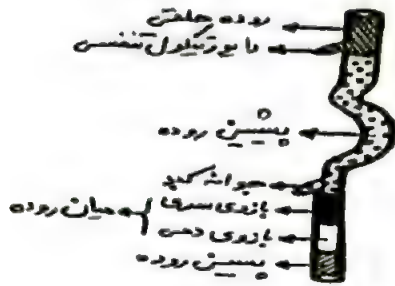 روده حلقی
دایورتیکول تنفسی
پسین روده
جوانه کبد
بازوی سری
میان روده
بازوی دمی
پسین روده